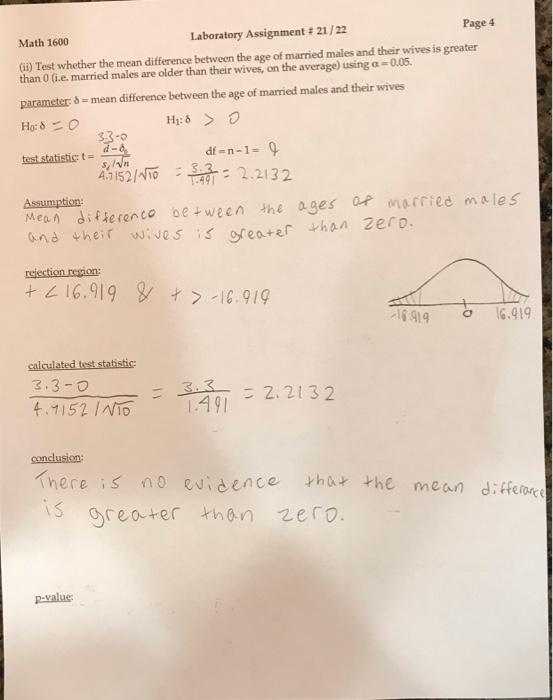 Page 4
Math 1600 Laboratory Assignment # 21/22
(ii) Test whether the mean difference between the age of married males and their wives is greater
than 0 (i.e. married males are older than their wives, on the average) using α = 0.05.
parameter: δ = mean difference between the age of married males and their wives
H₀: δ = 0 H₁: δ > 0
3.3-0
test statistic: t = d - δ₀ / s_d/√n df = n - 1 = 9
4.7152/√10 = 3.3/1.491 = 2.2132
Assumption:
Mean difference between the ages of married males
and their wives is greater than zero.
rejection region:
t < 16.919 & t > -16.919
-16.919 0 16.919
calculated test statistic:
3.3-0 / 4.7152/√10 = 3.3/1.491 = 2.2132
conclusion:
There is no evidence that the mean differance
is greater than zero.
p-value: